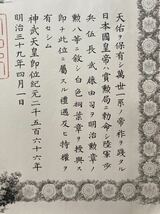 天佑ヲ保有シ萬世一系ノ帝祚ヲ踐タル
日本國皇帝ハ賞勲局ニ勅命シ陸軍歩
兵伍長武藤ヲ明治勲章ノ
勲八等ニ叙シ白色桐葉章ヲ授與ス
即チ此位ニ屬スル禮遇及ヒ特權ヲ
有セシム
神武天皇即位紀元二千五百六十六年
明治三十九年四月一日